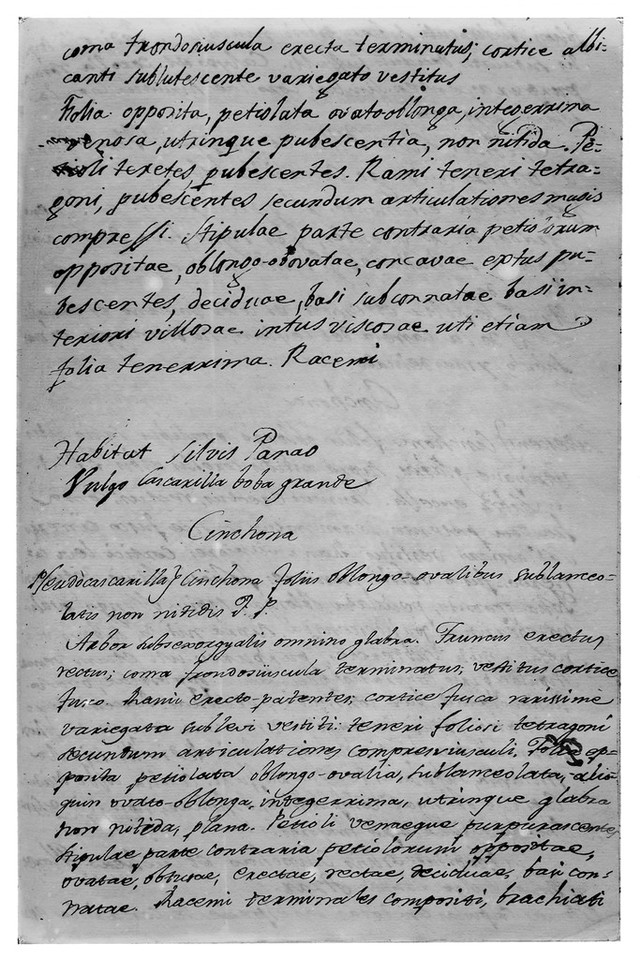 coma frondosiuscula erecta terminatus; cortice albi-
canti sublutescente variegato vestitus
Folia opposita, petiolata ovato-oblonga, integerrima
venosa, utrinque pubescentia, non nitida. Pe-
tioli teretes pubescentes. Rami teneri tetra-
goni, pubescentes secundum articulationes magis
compressi. Stipulae parte contraria petiolorum
oppositae, oblongo-obovatae, concavae extus pu-
bescentes, deciduae, basi subconnatae basi in-
teriori villosae intus viscosae uti etiam
folia tenerrima. Racemi
Habitat silvis Panao
Vulgo Cascarilla boba grande
Cinchona
Pseudocascarilla} Cinchona foliis oblongo-ovalibus sublanceo-
latis non nitidis
Arbor subsexorgyalis omnino glabra. Truncus erectus,
rectus; coma frondosiuscula terminatus; vestitus cortice
fusco. Rami erecto-patentes; cortice fusca rarissime
variegata sublevi vestiti: teneri foliosi tetragoni
secundum articulationes compressiusculi. Folia op-
posita petiolata oblongo-ovalia, sublanceolata, alio-
quin ovato-oblonga, integerrima, utrinque glabra
non nitida, plana. Petioli venaeque purpurascentes,
Stipulae parte contraria petiolorum oppositae,
ovatae, obtusae, erectae, rectae, deciduae, basi con-
natae. Racemi terminales compositi, brachiati